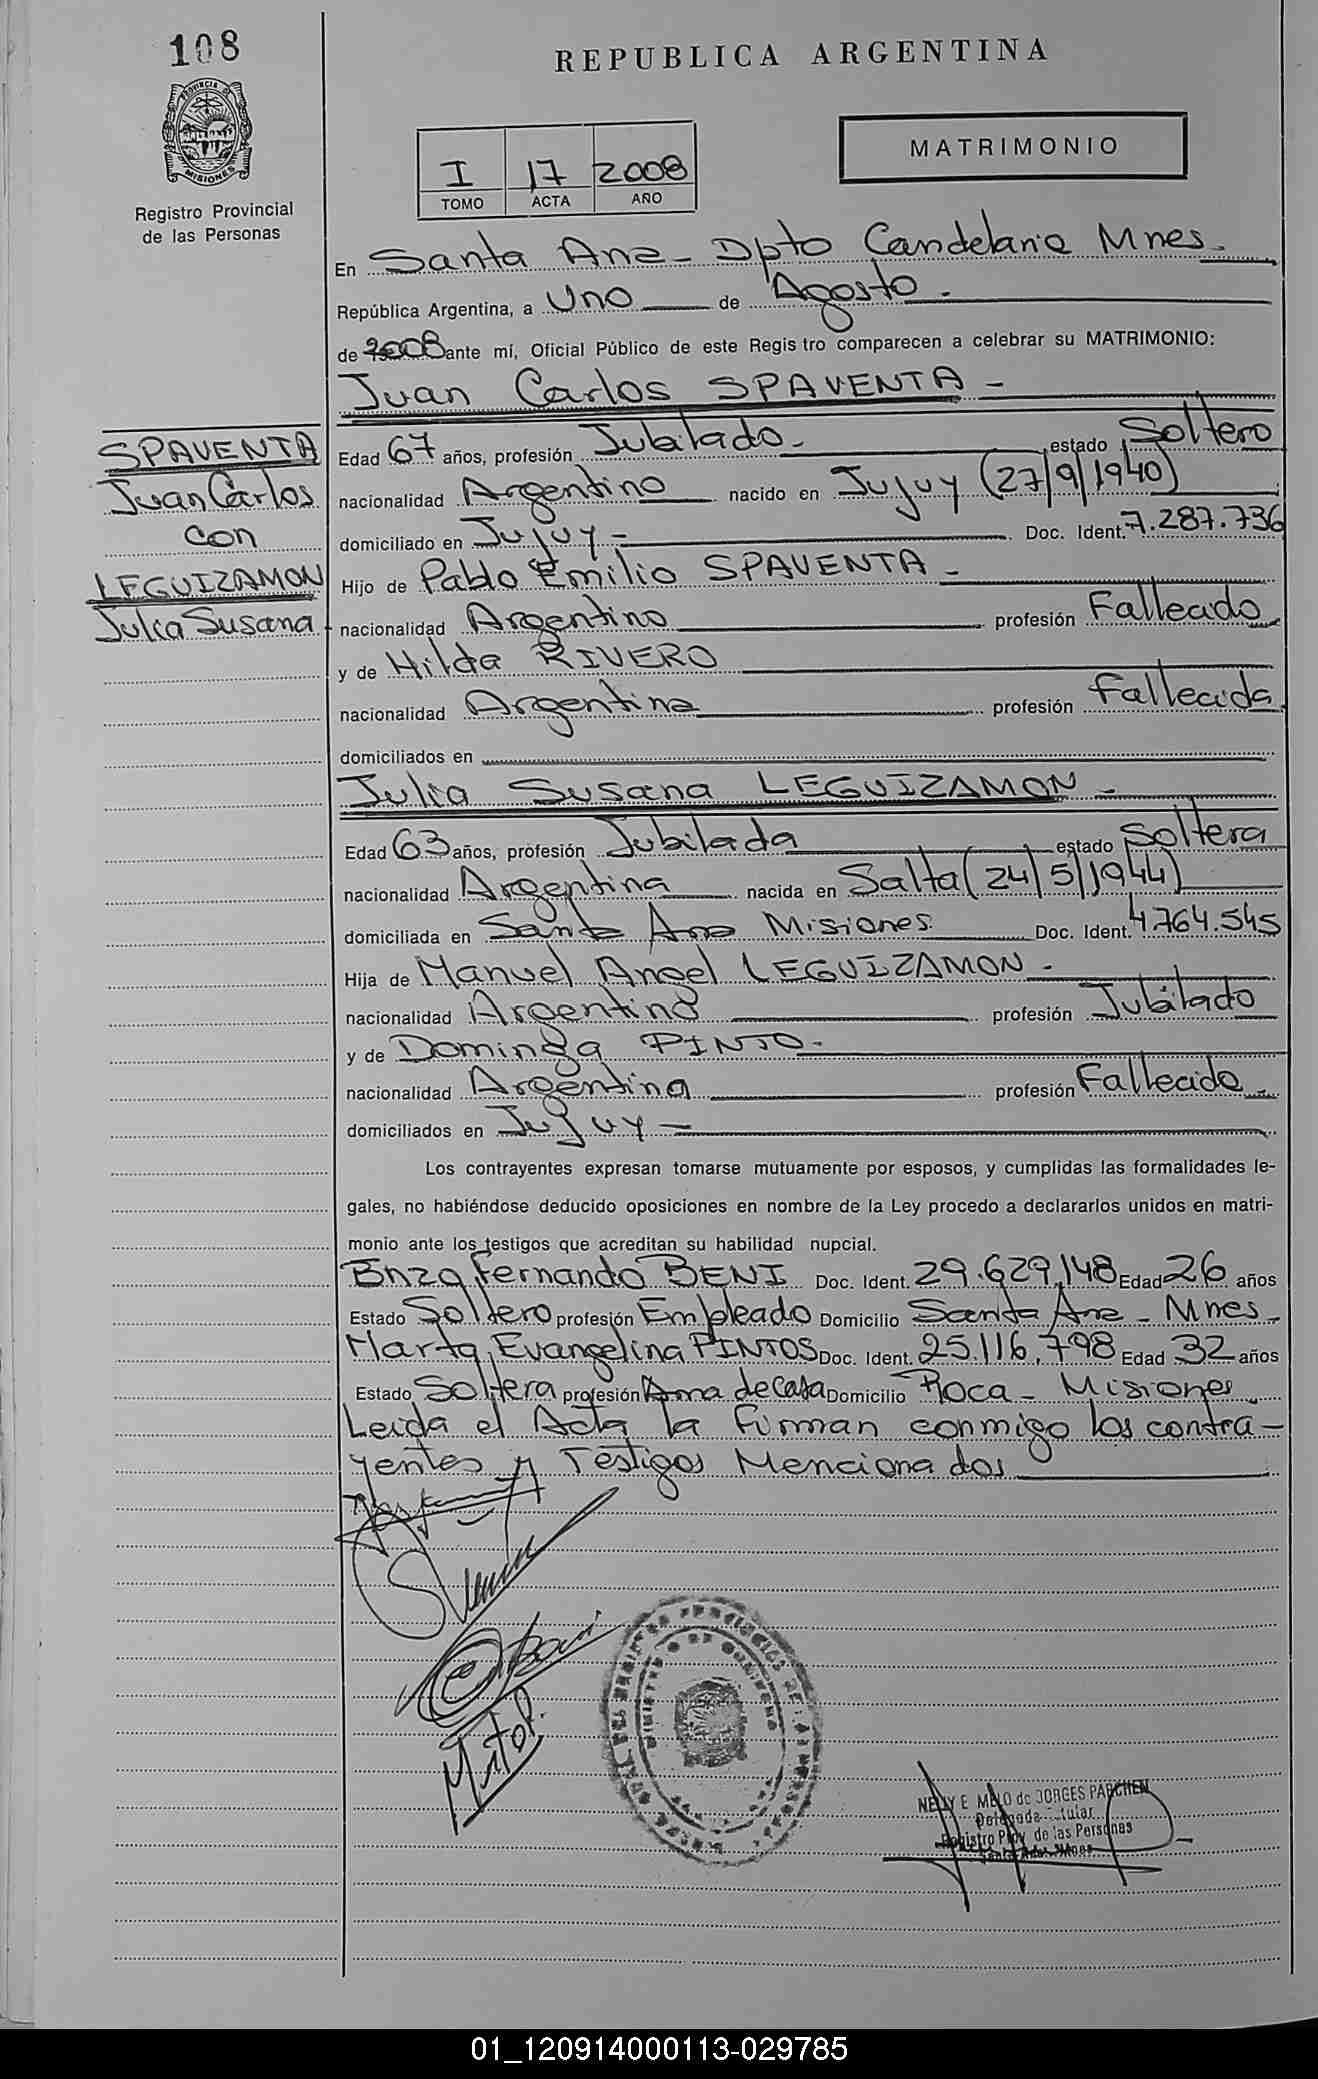 108
REPUBLICA ARGENTINA
PROVINCIA DE MISIONES
Registro Provincial
de las Personas
MATRIMONIO
I 17 2008
TOMO ACTA AÑO
En Santa Ana - Dpto Candelaria Mnes.
República Argentina, a Uno de Agosto.
de 2008 ante mí, Oficial Público de este Registro comparecen a celebrar su MATRIMONIO:
Juan Carlos SPAVENTA -
SPAVENTA
Juan Carlos
con
LEGUIZAMON
Julia Susana
Edad 67 años, profesión Jubilado - estado Soltero
nacionalidad Argentino nacido en Jujuy (27/9/1940)
domiciliado en Jujuy - Doc. Ident. 7.287.736
Hijo de Pablo Emilio SPAVENTA -
nacionalidad Argentino profesión Fallecido
y de Hilda RIVERO
nacionalidad Argentina profesión Fallecida
domiciliados en
Julia Susana LEGUIZAMON -
Edad 63 años, profesión Jubilada estado Soltera
nacionalidad Argentina nacida en Salta (24/5/1944)
domiciliada en Santa Ana Misiones. Doc. Ident. 4.764.545
Hija de Manuel Angel LEGUIZAMON -
nacionalidad Argentino profesión Jubilado
y de Dominga PINTO -
nacionalidad Argentina profesión Fallecida
domiciliados en Jujuy -
Los contrayentes expresan tomarse mutuamente por esposos, y cumplidas las formalidades le-
gales, no habiéndose deducido oposiciones en nombre de la Ley procedo a declararlos unidos en matri-
monio ante los testigos que acreditan su habilidad nupcial.
Enzo Fernando BENI Doc. Ident. 29.629.148 Edad 26 años
Estado Soltero profesión Empleado Domicilio Santa Ana - Mnes.
Marta Evangelina PINTOS Doc. Ident. 25.116.798 Edad 32 años
Estado Soltera profesión Ama de Casa Domicilio Roca - Misiones
Leida el Acta la firman conmigo los contra-
yentes y Testigos Mencionados
NELLY E MELO de BORGES PARCHEN
Delegada Titular
Registro Prov. de las Personas
01_120914000113-029785